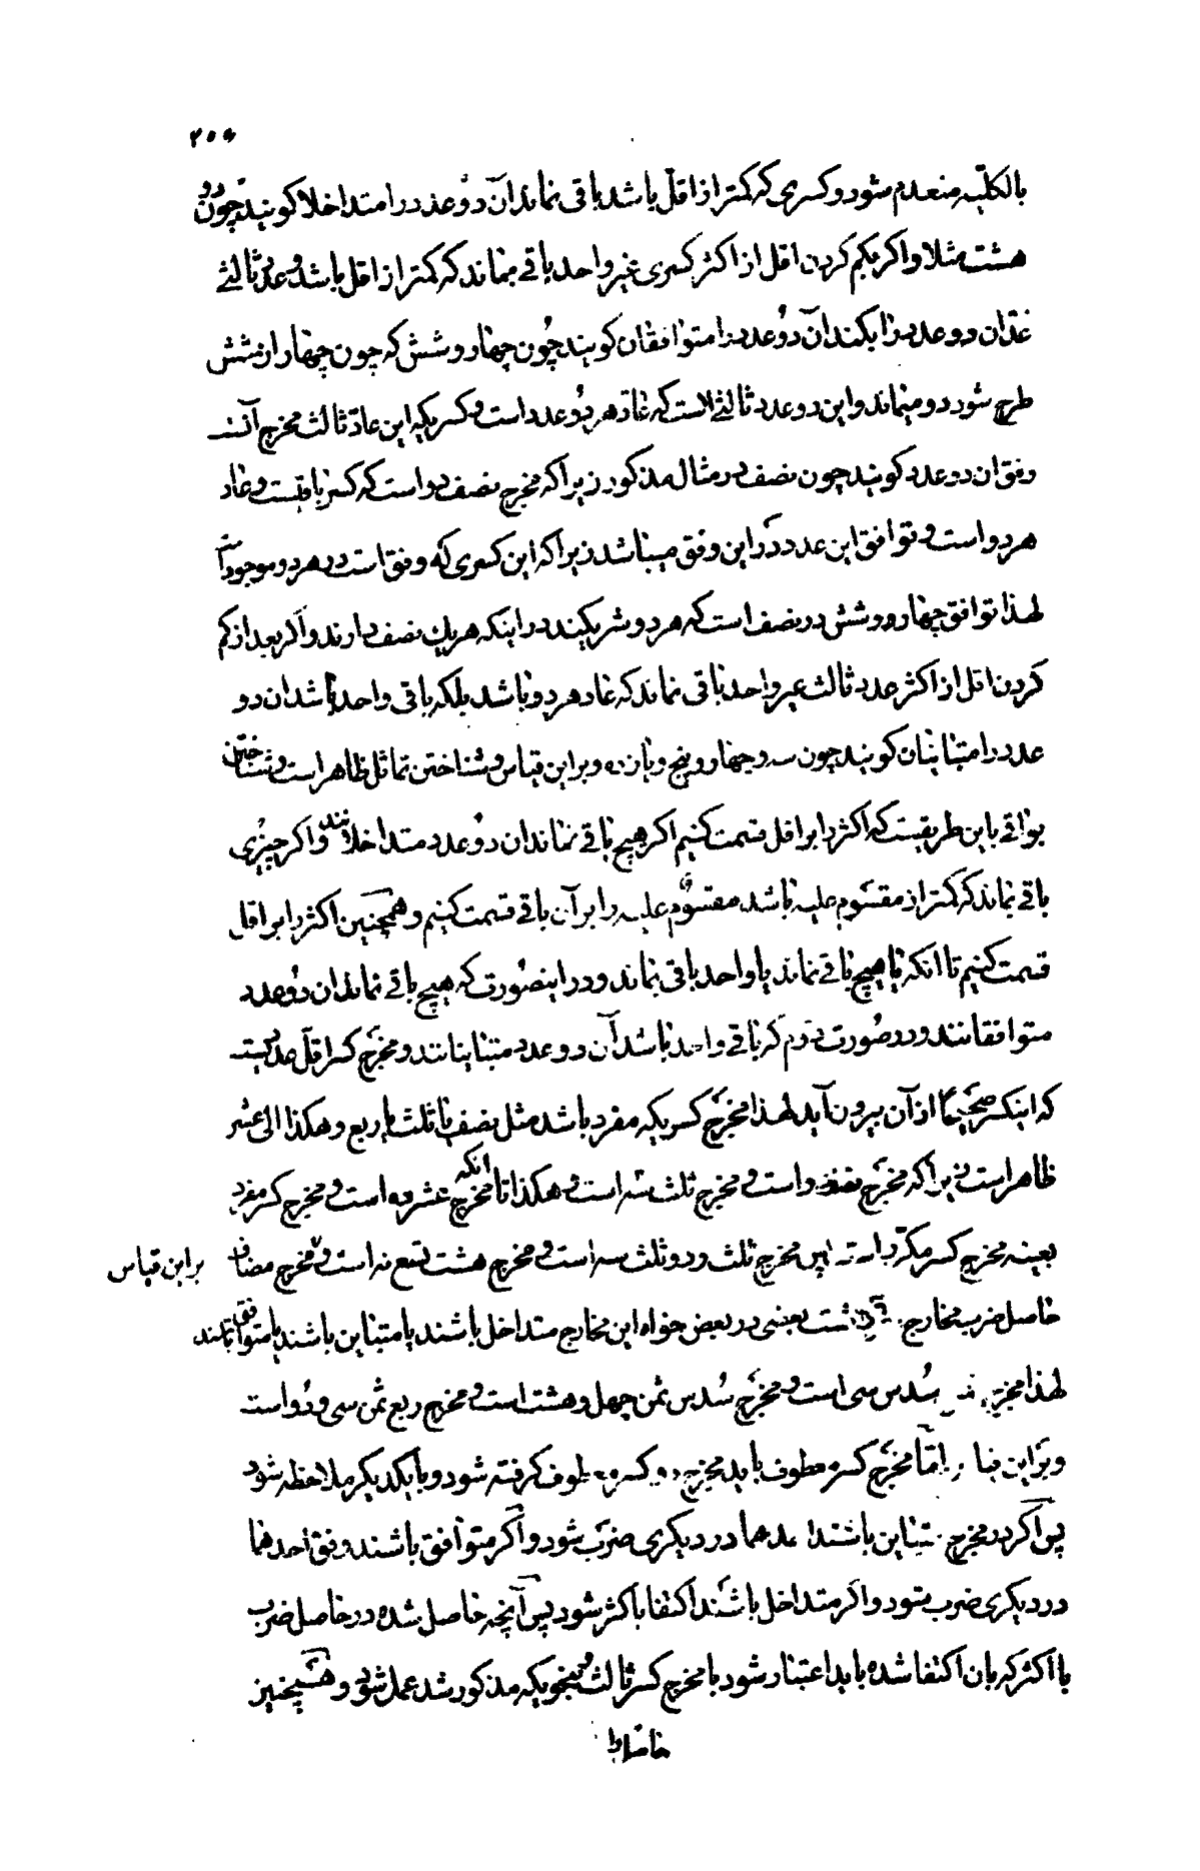 ۲۰۶
بالکلّیه منعدم شود و کسری که کمتر از اقلّ باشد باقی نماند آن دو عدد را متداخلان کویند چون دو و
هشت مثلا و اکر بکم کردن اقل از اکثر کسری غیر واحد باقی بماند که کمتر از اقل باشد و عدد ثالثی
عدّ ان دو عدد را بکند آن دو عدد را متوافقان کویند چون چهار و شش که چون چهار از شش
طرح شود دو میماند و این دو عدد ثالثی است که عادّ هر دو عدد است و کسریکه این عادّ ثالث مخرج آنست
وفق ان دو عدد کویند چون نصف در مثال مذکور زیراکه مخرج نصف دو است که کسر باقیست و عاد
هر دو است و توافق این عدد در این وفق میباشد زیراکه این کسری که وفق است در هر دو موجود است
لهذا توافق چهار و شش در نصف است که هر دو شریکند در اینکه هر یک نصف دارند و اکر بعد از کم
کردن اقل از اکثر عدد ثالث غیر واحد باقی نماند که عاد هر دو باشد بلکه باقی واحد باشد ان دو
عدد را متباینان کویند چون سه و چهار و پنج و یازده و براین قیاس و شناختن تماثل ظاهر است و شناختن
بواقی باین طریقست که اکثر را بر اقل قسمت کنیم اکر هیچ باقی نماند ان دو عدد متداخلانند و اکر چیزی
باقی بماند که کمتر از مقسوم علیه باشد مقسوم علیه را بر آن باقی قسمت کنیم و همچنین اکثر را بر اقل
قسمت کنیم تا انکه یا هیچ باقی نماند یا واحد باقی بماند و در اینصورت که هیچ باقی نماند ان دو عدد
متوافقانند و در صورت دوم که باقی واحد باشد آن دو عدد متباینانند و مخرج کسر اقلّ عددیست
که اینکسر صحیحا از آن بیرون آید لهذا مخرج کسریکه مفرد باشد مثل نصف یا ثلث یا ربع و هکذا الی عشر
ظاهر است زیراکه مخرج نصف دو است و مخرج ثلث سه است و هکذا تا انکه مخرج عشر ده است و مخرج کسر مفرد
بعینه مخرج کسر مکرّر است پس مخرج ثلث و دو ثلث سه است و مخرج هشت تسع نه است و مخرج مضاف بر این قیاس
حاصل ضرب مخارج بعضی در بعض خواه این مخارج متداخل باشند یا متباین باشند یا متوافق باشند
لهذا مخرج سُدس سی است و مخرج سُدس ثمن چهل و هشت است و مخرج ربع ثمن سی و دو است
و بر این قیاس و امّا مخرج کسر معطوف باید مخرج دو کسر معطوف کرفته شود و با یکدیکر ملاحظه شود
پس اکر دو مخرج متباین باشند احدهما در دیکری ضرب شود و اکر متوافق باشند وفق احدهما
در دیکری ضرب شود و اکر متداخل باشند اکتفا باکثر شود پس آنچه حاصل شده در حاصل ضرب
با اکثر که بان اکتفا شده باید اعتبار شود با مخرج کسر ثالث بنحویکه مذکور شد عمل شود و همچنین
حاصل را